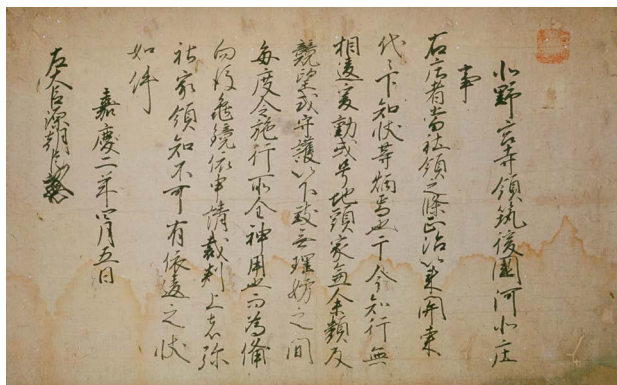 北野宮寺領筑後國河北庄
事
右庄者當社領之條正治以来関東
代々下知状等炳焉也于今知行無
相違爰動或号地頭家無余類
競望或守護以下致無理妨之間
毎度令施行所全神用也而為備
向後亀鏡依申請裁判上者弥
社家領知不可有依違之状
如件
嘉慶二年四月五日
源朝臣